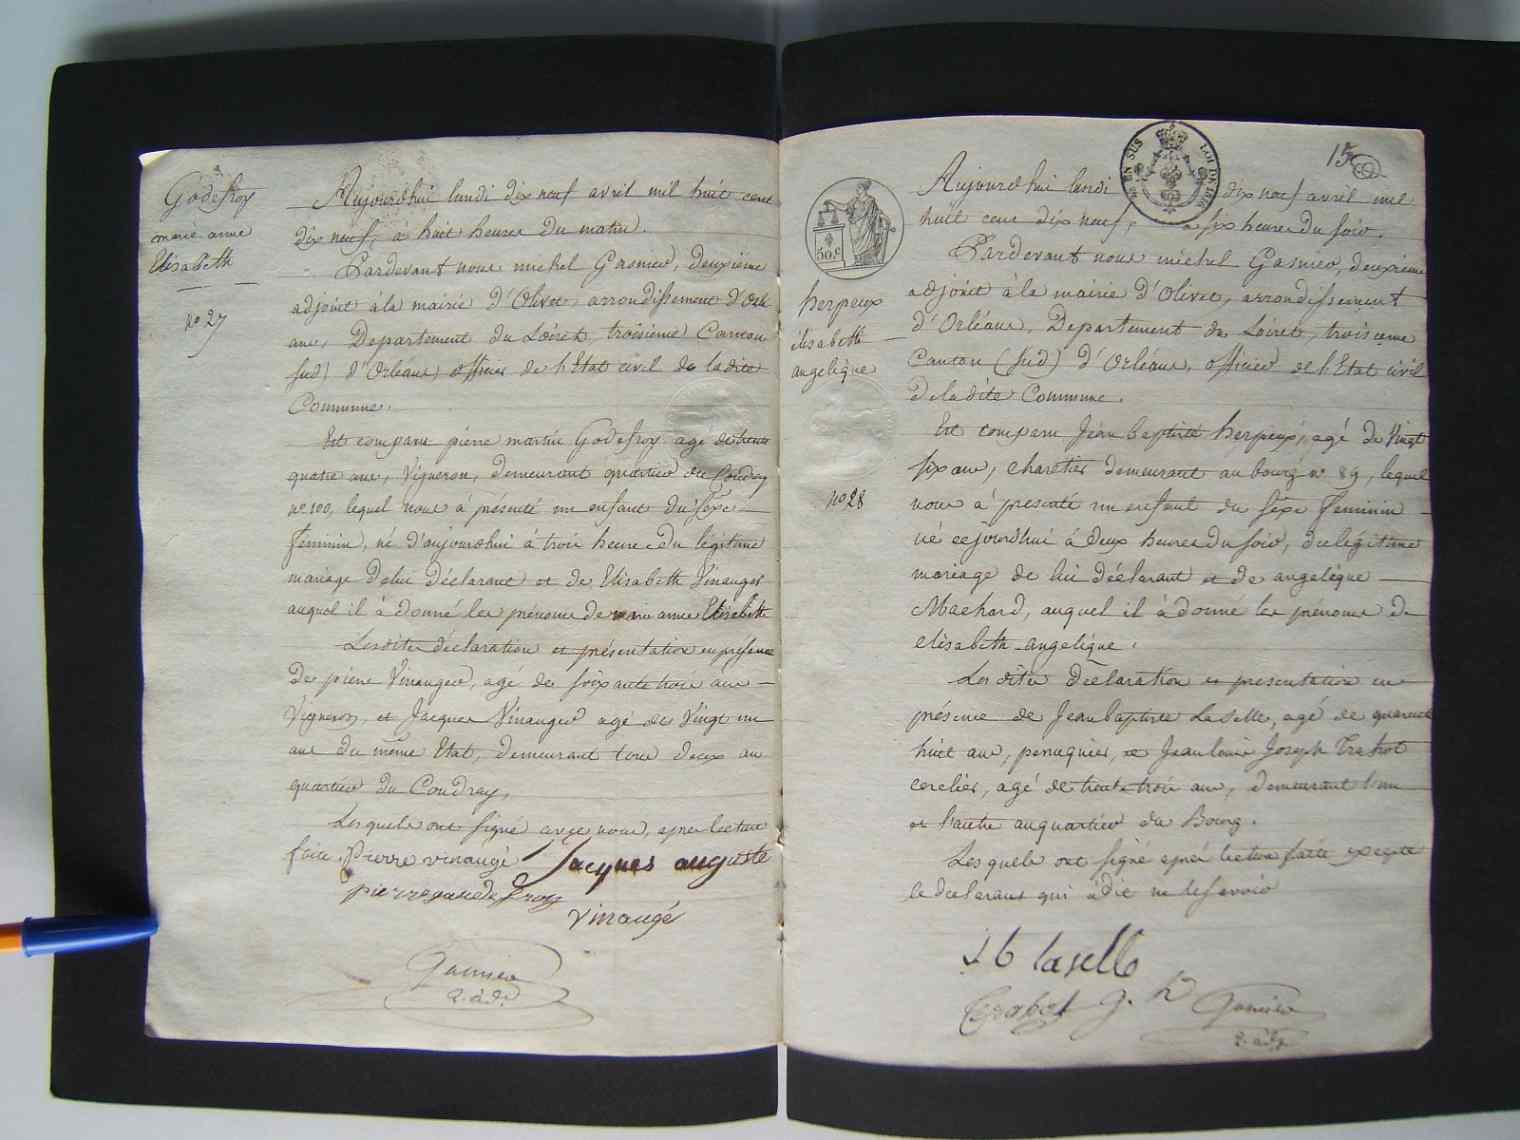 Godefroy
marie anne
Elisabeth
no 27
Aujourdhui lundi dix neuf avril mil huit cent
dix neuf, à huit heures du matin.
Pardevant nous michel Gasnier, deuxième
adjoint à la mairie d'Olivet, arrondissement d'Orlé
ans, Departement du Loiret, troisième Canton
sud) d'Orléans, officier de l'Etat civil de la dite
Commune.
Est comparu pierre martin Godefroy agé de trente
quatre ans, Vigneron, demeurant quartier du Coudray
no 100, lequel nous à présenté un enfant du sexe
feminin, né d'aujourdhui à trois heures du légitime
mariage de lui déclarant et de Elisabeth Vinauger
auquel il à donné les prénoms de marie anne Elisabeth
Lesdites déclaration et présentation en presence
De pierre Vinauger, agé de soixante trois ans
Vigneron, et Jacques Vinauger agé de Vingt un
ans du même Etat, demeurant tous deux au
quartier du Coudray,
Lesquels ont signé avec nous, après lecture
faite. Pierre vinaugé Jacques auguste
pierre Godefroy
vinaugé
Gasnier
2. adj.
15
EN SUS
50.c
herpeux
élisabeth
angelique
no 28
Aujourdhui lundi dix neuf avril mil
huit cent dix neuf, à six heures du soir.
Pardevant nous michel Gasnier, deuxième
adjoint à la mairie d'Olivet, arrondissement
d'Orléans, Departement du Loiret, troisieme
Canton (Sud) d'Orléans, officier de l'Etat civil
de ladite Commune.
Est comparu Jean baptiste herpeux, agé de Vingt
six ans, charetier demeurant au bourg no 89, lequel
nous à presenté un enfant du sexe feminin
né cejourdhui à deux heures du soir, du légitime
mariage de lui déclarant et de angelique
Machard, auquel il à donné les prénoms de
elisabeth angelique.
Lesdites déclaration et presentation en
présence de Jean baptiste Laselle, agé de quarante
huit ans, peruquier, et Jean louis Joseph Trabot
cerclier, agé de trente trois ans, demeurant l'un
et l'autre au quartier du Bourg.
Lesquels ont signé après lecture faite excepté
le déclarant qui à dit ne le savoir
J b laselle
Trabot g. h Gasnier
2. adj.